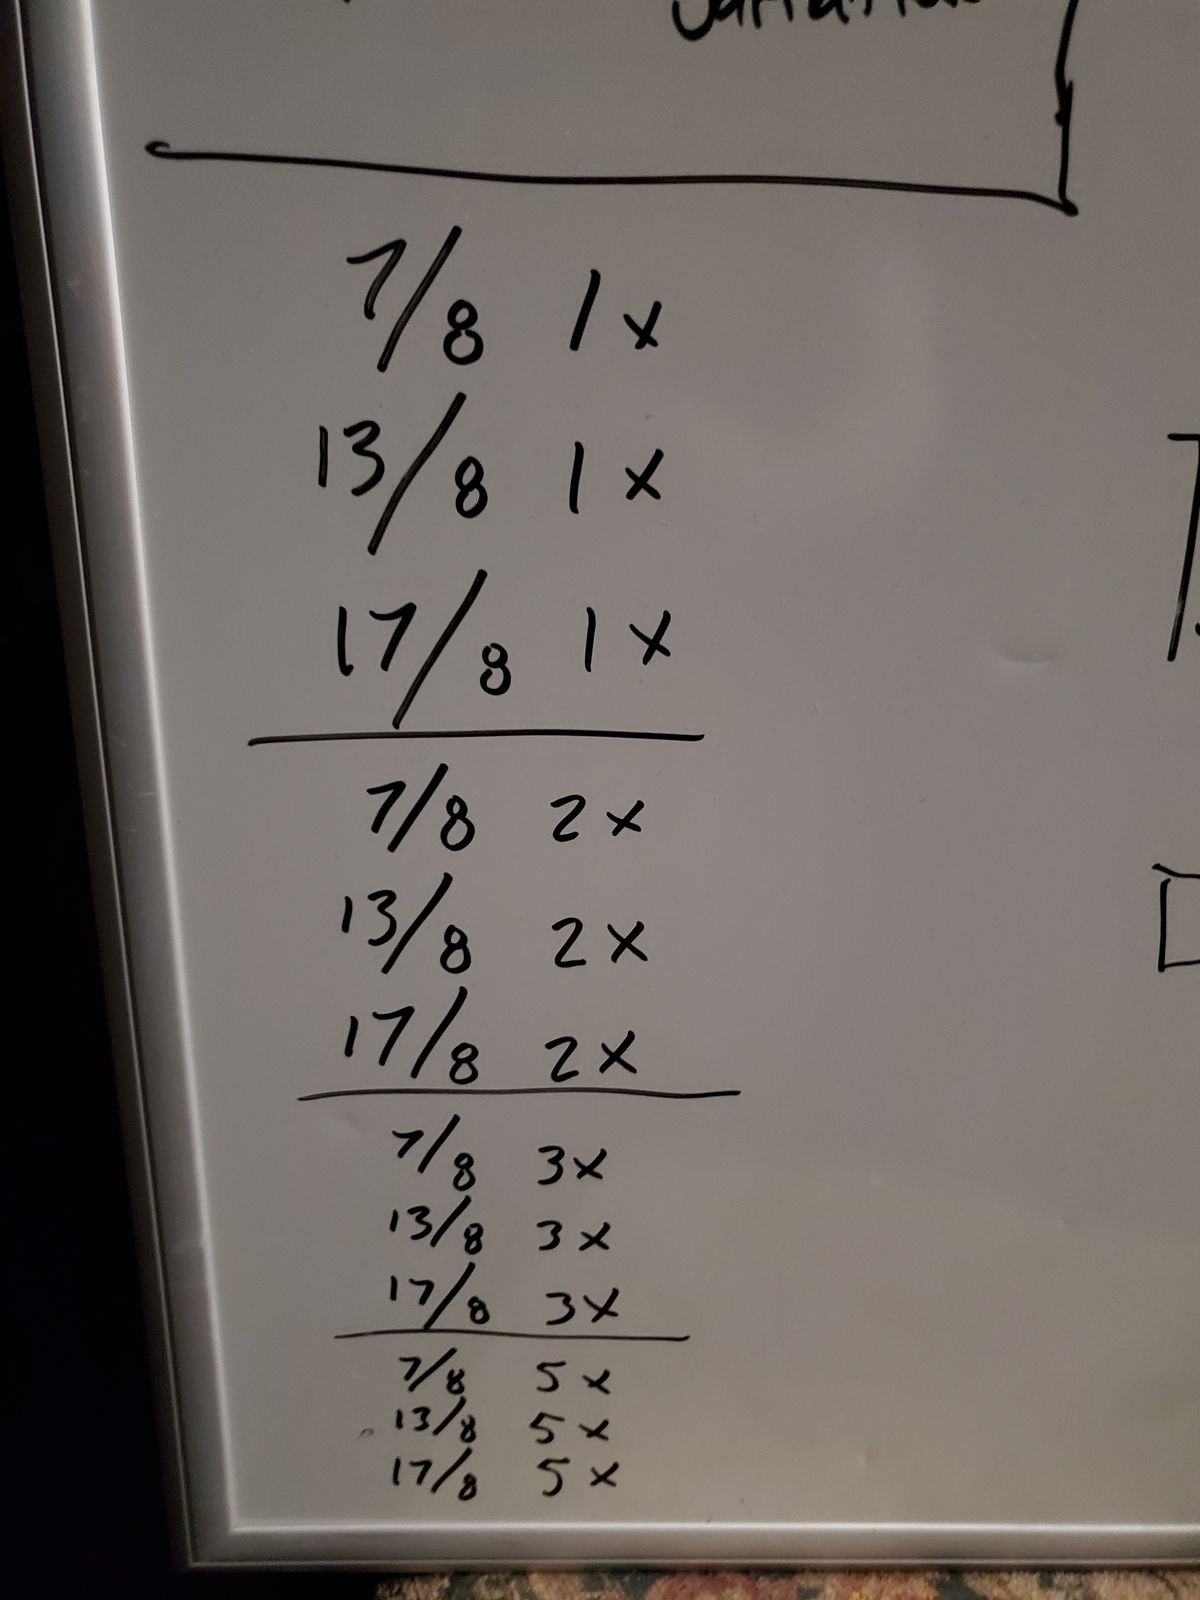 7/8 1x
13/8 1x
17/8 1x
7/8 2x
13/8 2x
17/8 2x
7/8 3x
13/8 3x
17/8 3x
7/8 5x
13/8 5x
17/8 5x